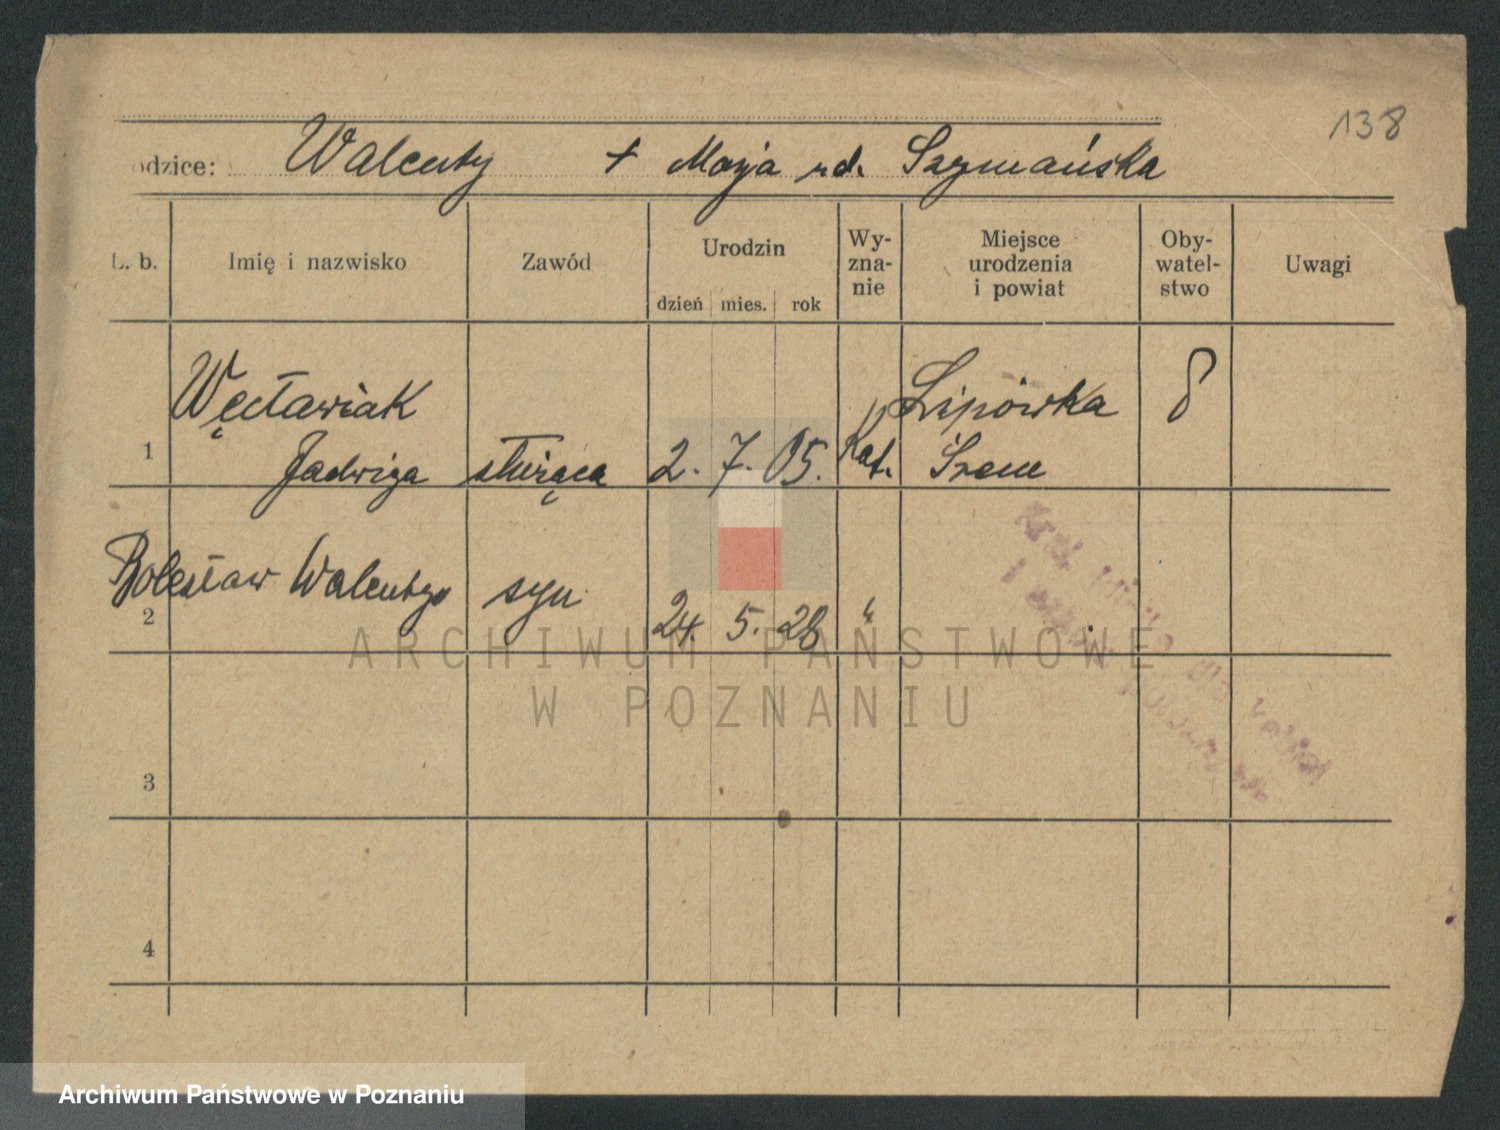 138
odzice: Walenty + Marja rd. Szymańska
L. b. Imię i nazwisko Zawód Urodzin dzień mies. rok Wy-zna-nie Miejsce urodzenia i powiat Oby-watel-stwo Uwagi
Węcławiak Lipówka
1 Jadwiga służąca 2. 7. 05. Kat. Śrem
Bolesław Walenty syn
2 24. 5. 28 "
3
4
ARCHIWUM PAŃSTWOWE
W POZNANIU
Archiwum Państwowe w Poznaniu